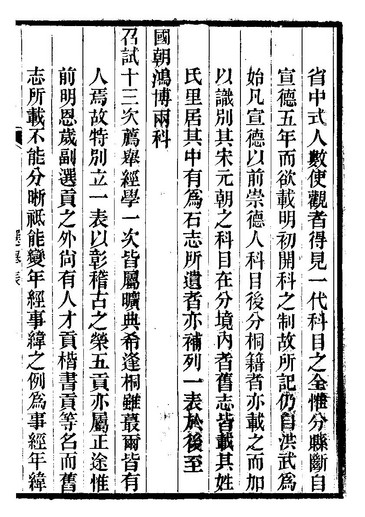 省中式人數使觀者得見一代科目之全惟分縣斷自
宣德五年而欲載明初開科之制故所記仍自洪武爲
始凡宣德以前崇德人科目後分桐籍者亦載之而加
以識別其宋元朝之科目在分境內者舊志皆載其姓
氏里居其中有爲石志所遺者亦補列一表於後至
國朝鴻博兩科
召試十三次薦舉經學一次皆屬曠典希逢桐雖蕞爾皆有
人焉故特別立一表以彰稽古之榮五貢亦屬正途惟
前明恩歲副選貢之外尙有人才貢楷書貢等名而舊
志所載不能分晰祇能變年經事緯之例爲事經年緯